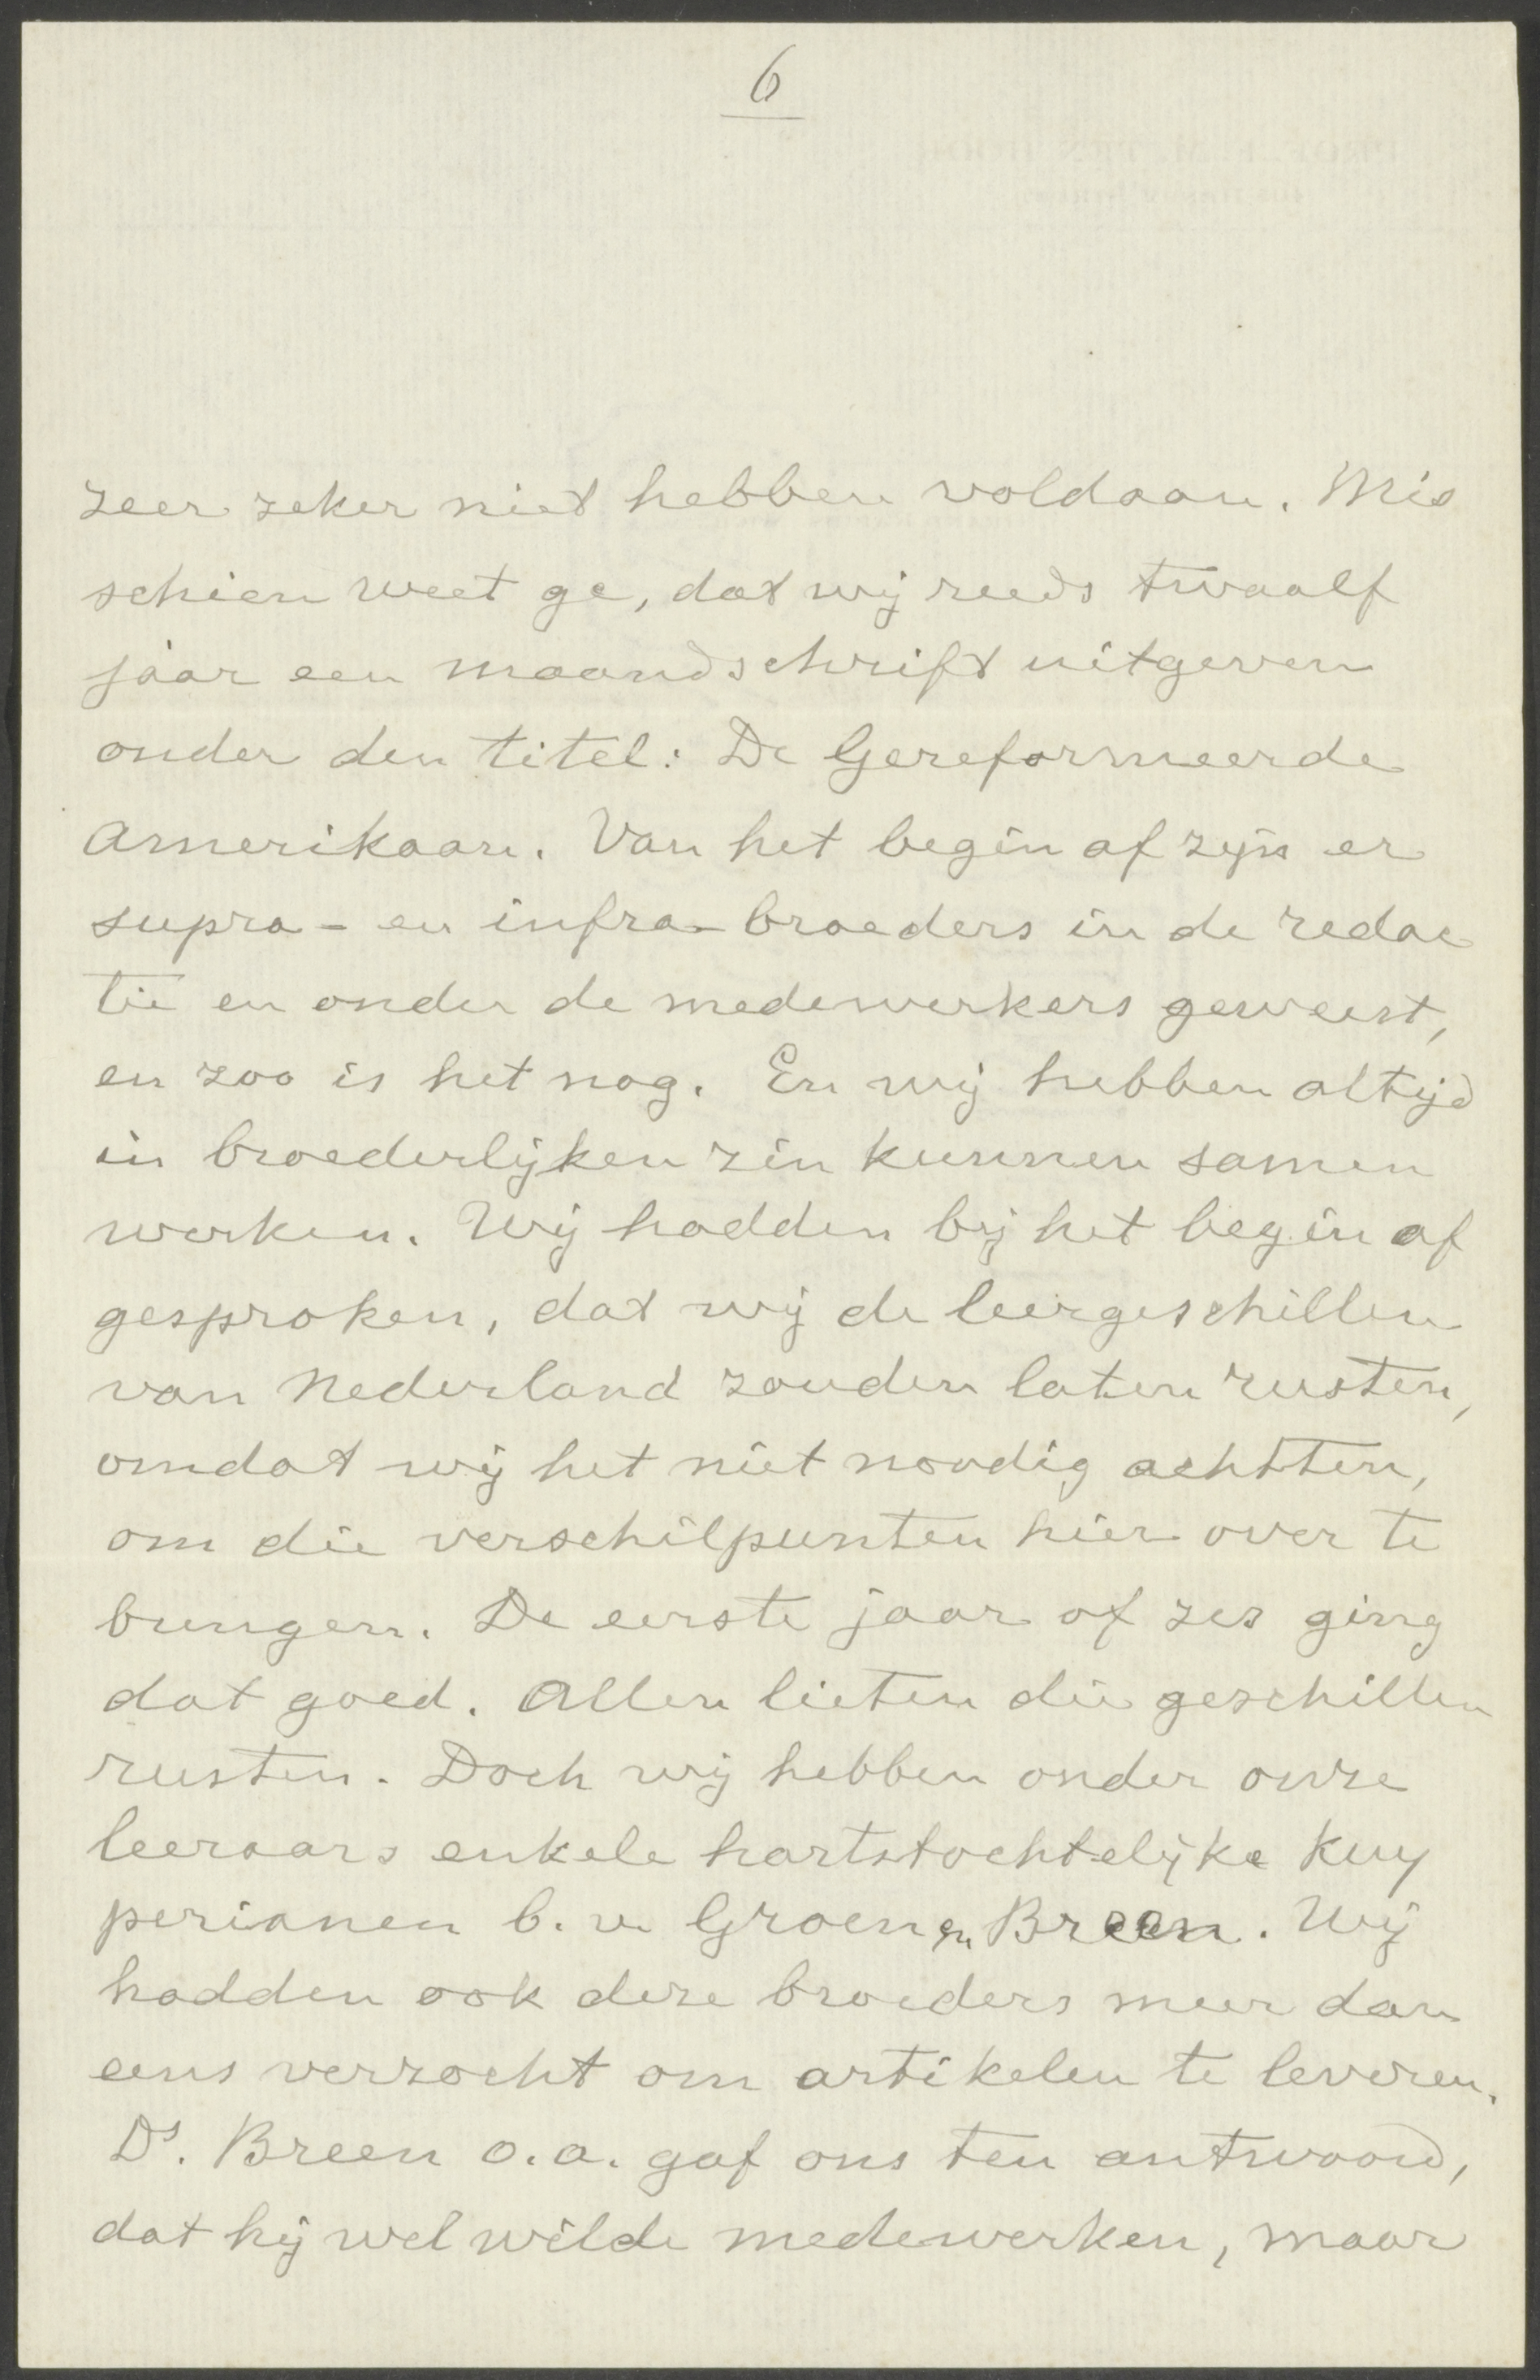 6
zeer zeker niet hebben voldaan. Mis
schien weet ge, dat wij reeds twaalf
jaar een maandschrift uitgeven
onder den titel: De Gereformeerde
Amerikaan. Van het begin af zijn er
supra- en infra-broeders in de redac
tie en onder de medewerkers geweest,
en zoo is het nog. En wij hebben altijd
in broederlijken zin kunnen samen
werken. Wij hadden bij het begin af
gesproken, dat wij de leergeschillen
van Nederland zouden laten rusten,
omdat wij het niet noodig achtten,
om die verschilpunten hier over te
brengen. De eerste jaar of zes ging
dat goed. Allen lieten die geschillen
rusten. Doch wij hebben onder onze
leeraars enkele hartstochtelijke Kuy
perianen b.v. Groen en Breen. Wij
hadden ook deze broeders meer dan
eens verzocht om artikelen te leveren.
Ds. Breen o.a. gaf ons ten antwoord,
dat hij wel wilde medewerken, maar